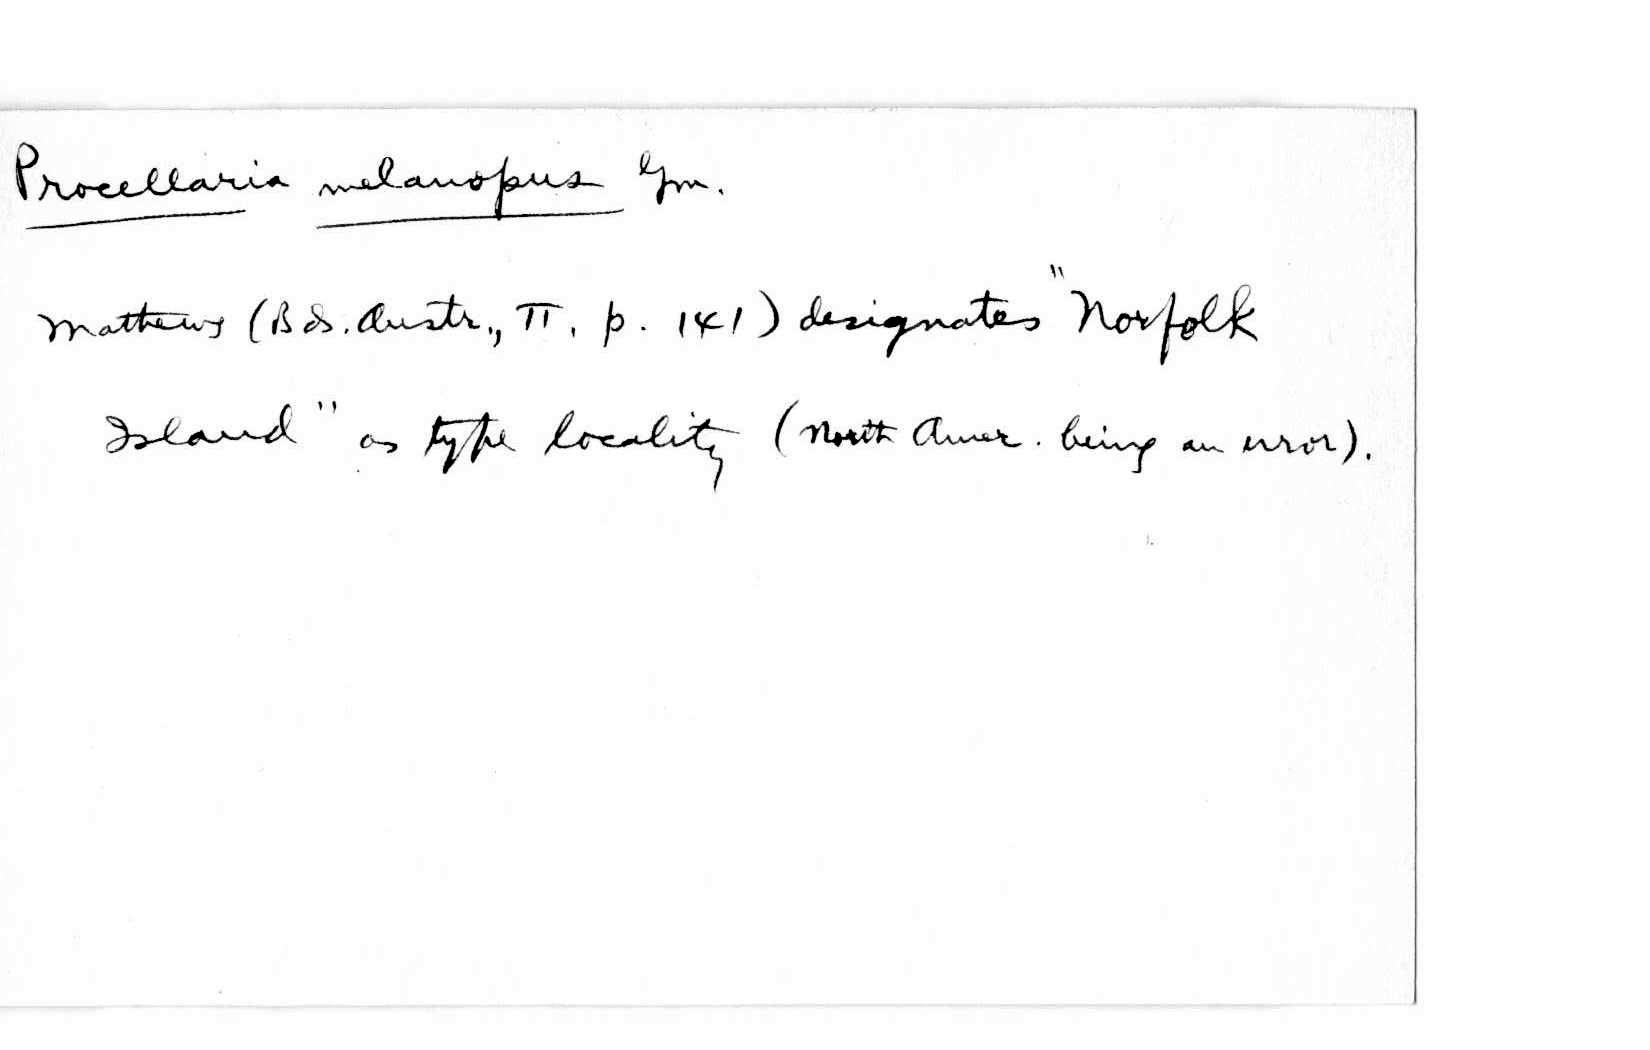 Procellaria melanopus Gm.
Mathews (Bds. Austr., II, p. 141) designates "Norfolk
Island" as type locality (North Amer. being an error).